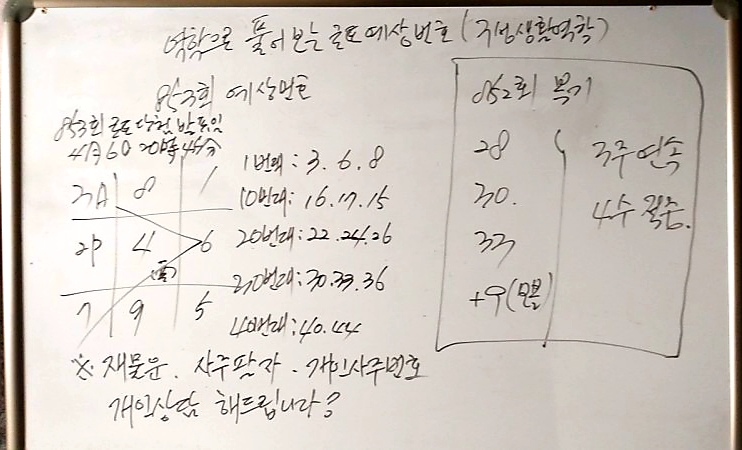 역학으로 풀어보는 로또예상번호 (구성생활역학)
853회 예상번호
853회 로또당첨발표일
4月6日 20時45分
3A 8 1
2P 4 6
7 9 5
1번대: 3. 6. 8
10번대: 16.17.15
20번대: 22.24.26
30번대: 30.33.36
40번대: 40.44
852회 복기
28
30.
33
+9(보볼)
3주연속
4수 적중.
※ 재물운. 사주팔자. 개인사주번호
개인상담 해드립니다?